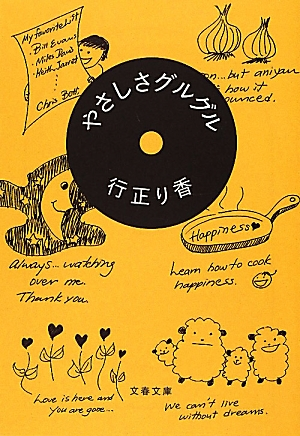 My favorite List
・Bill Evans
・Miles Davis
・Keith Jarret
・Chris Bott
on...but aniyan
how it
ounced.
やさしさグルグル
行正り香
Happiness
Always... watching
over me.
Thank you.
Learn how to cook
happiness.
Love is here and
you are good...
We can't live
without dreams.
文春文庫